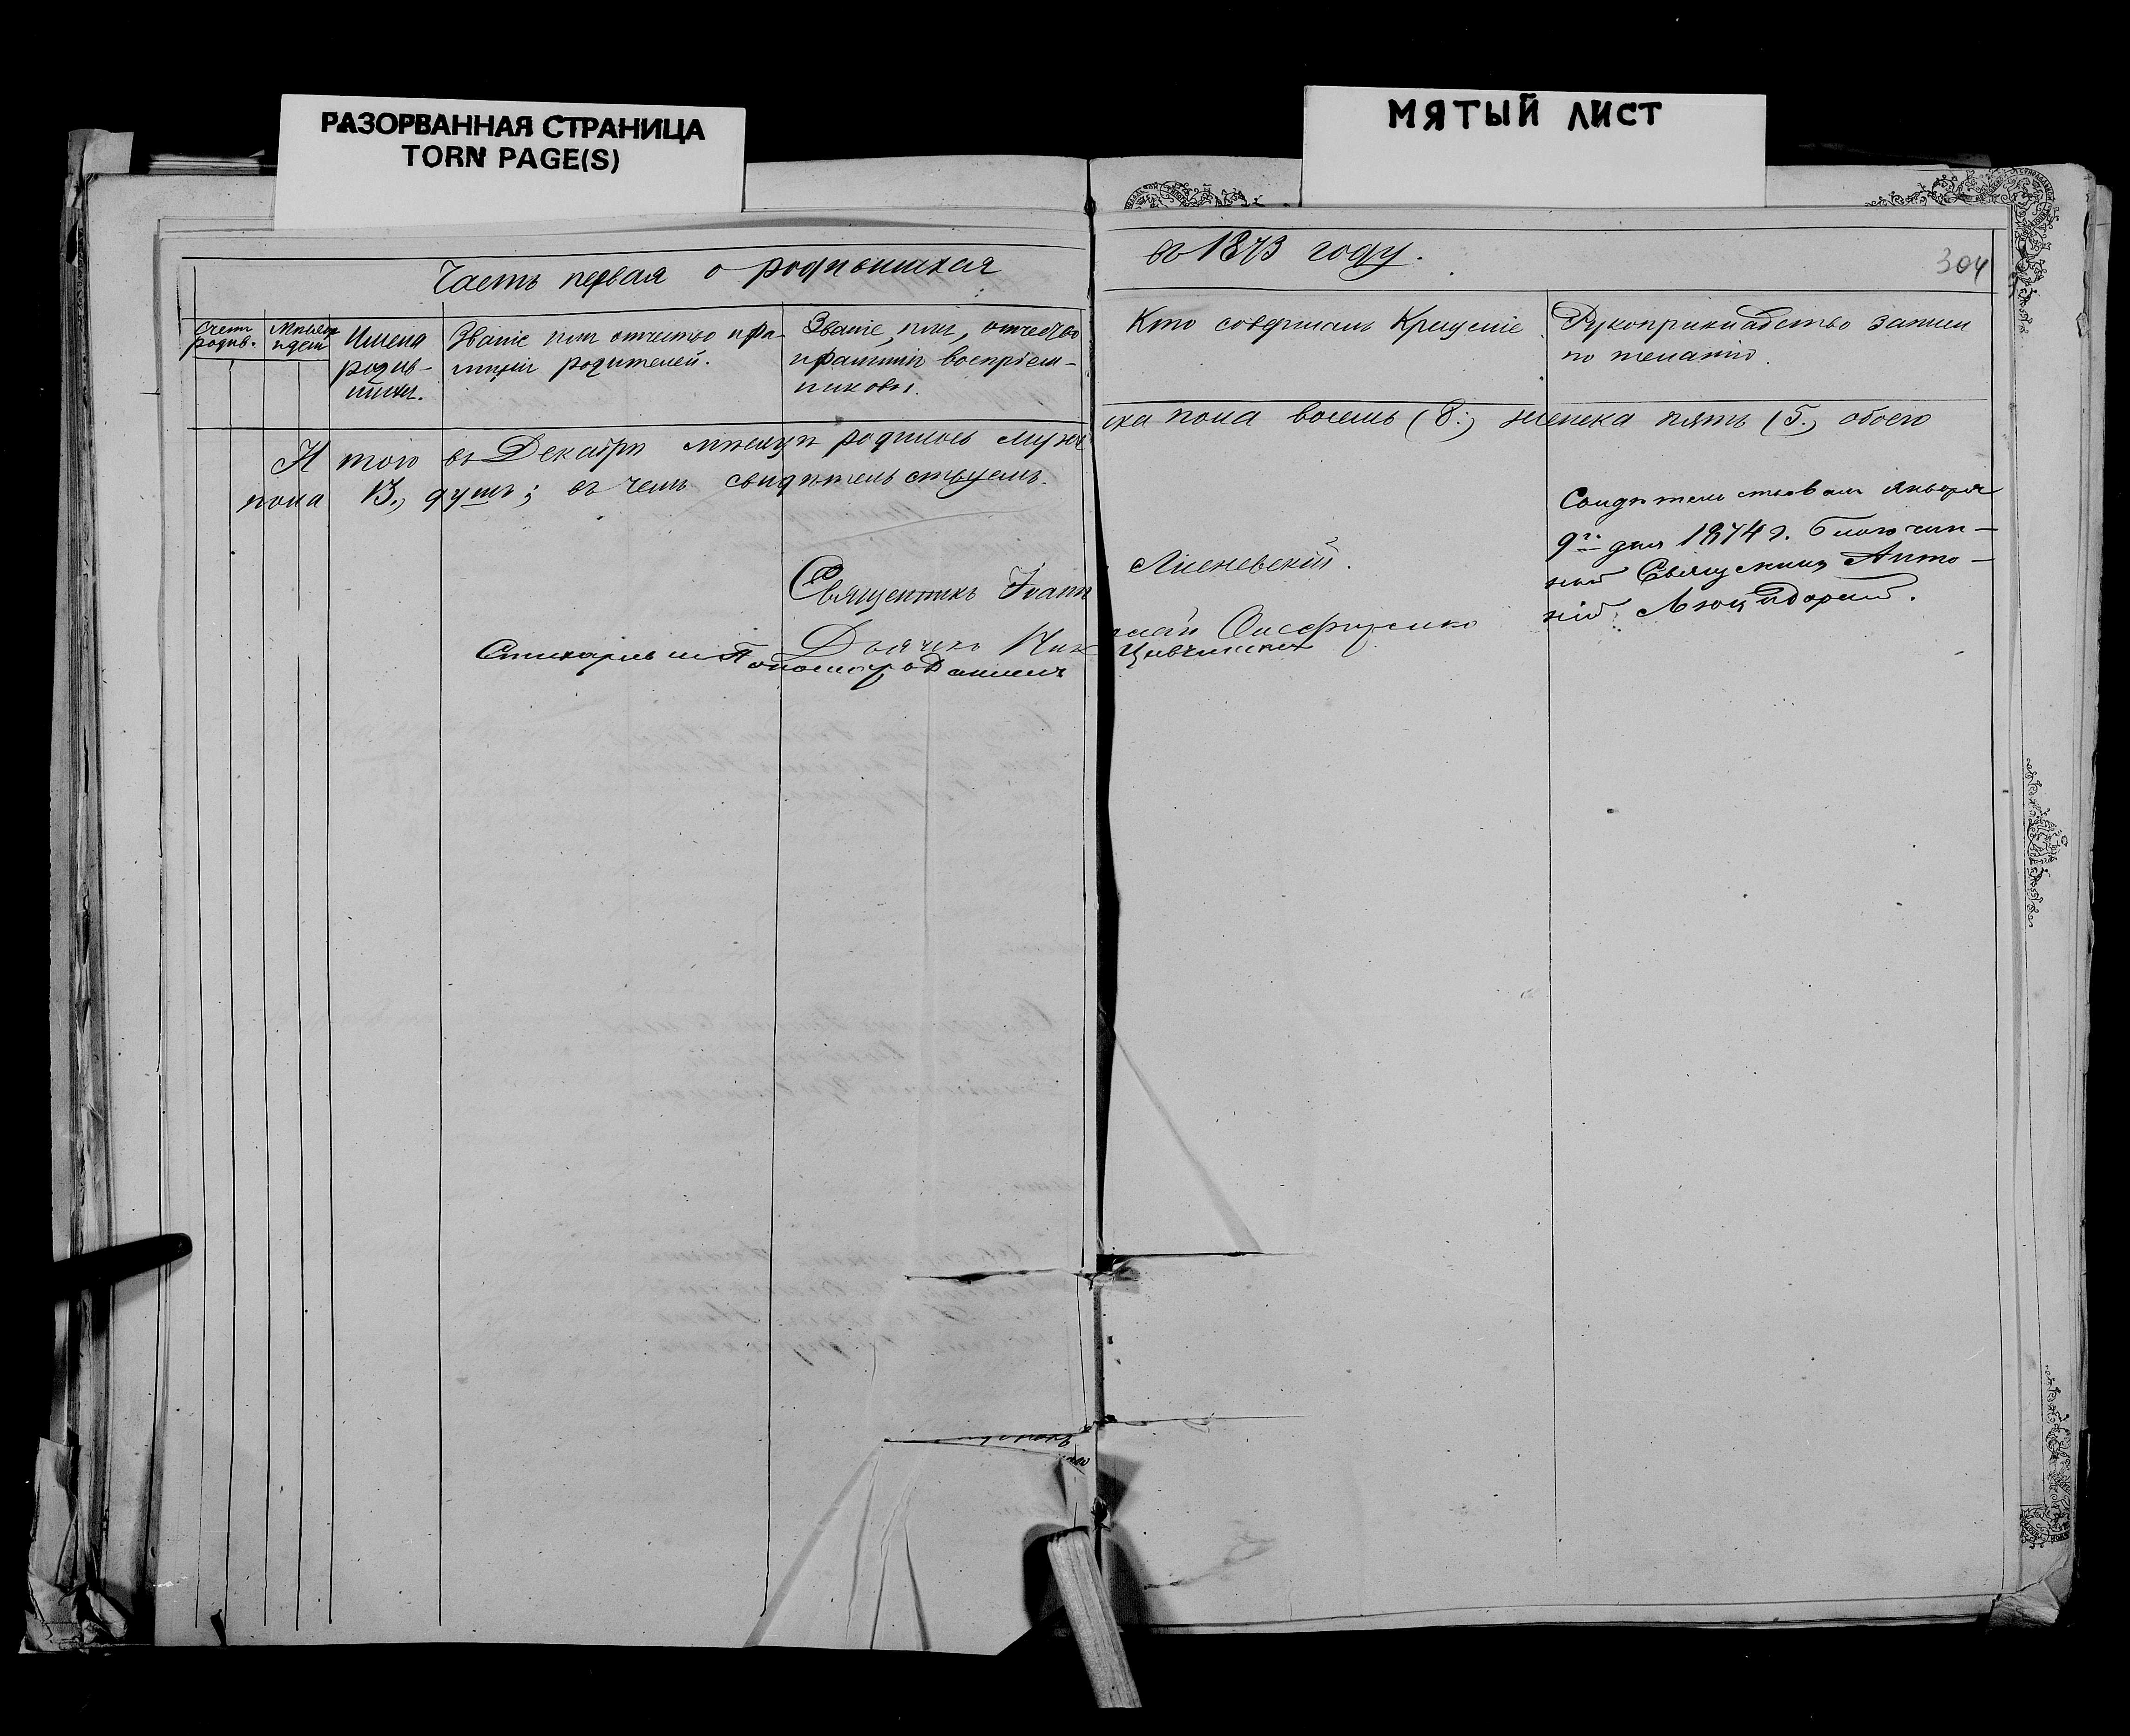 РАЗОРВАННАЯ СТРАНИЦА
TORN PAGE(S)
МЯТЫЙ ЛИСТ
Часть первая о родившихся
въ 1873 году.
304
Счетъ родив.
Мѣсяцъ и дни
Имена родив-
шихся.
Званіе имя отчество и фа-
милія родителей.
Званіе, имя, отчество
и фамилія воспріем-
никовъ.
Кто совершалъ Крещеніе
Рукоприкладство записи
по желанію.
Итого въ Декабрѣ мѣсяцѣ родилось мужеска пола восемь (8.) женска пять (5.) обоего
пола 13., душъ; въ чемъ свидѣтельствуемъ.
Священникъ Іоаннъ
Дьячекъ
Стихарный Пономарь Даніилъ
Свидѣтельствовалъ Января
9го дня 1874 г. Благочин-
ный Священникъ Анто-
ній